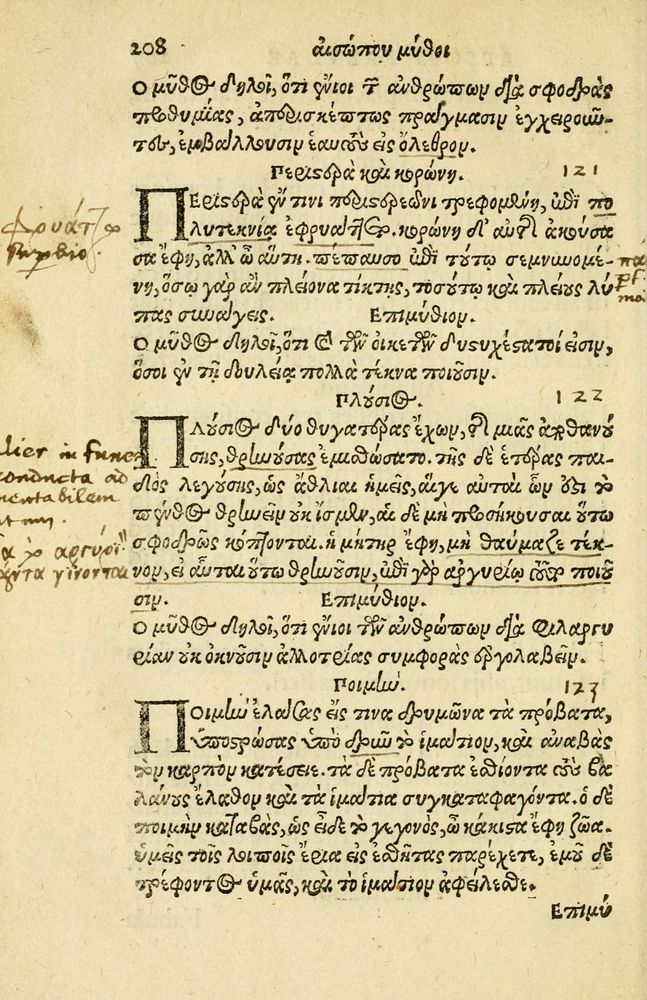 208 αἰσώπου μῦθοι
Ο μῦθος δηλοῖ, ὅτι ἔνιοι τῶν ἀνθρώπων διὰ σφοδρὰς
προθυμίας, ἀπερισκέπτως πράγμασιν ἐγχειροῦν-
τες, ἐμβάλλουσιν ἑαυτοὺς εἰς ὄλεθρον.
Περιστερὰ καὶ κορώνη. 121
ΠΕριστερὰ ἔν τινι περιστερεῶνι τρεφομένη, ἐπὶ πο
λυτεκνίᾳ ἐφρυάττετο. κορώνη δ' αὐτῆς ἀκούσα
σα ἔφη, ἀλλ' ὦ αὕτη. πέπαυσο ἐπὶ τούτῳ σεμνυνομέ-
νη, ὅσῳ γὰρ ἂν πλείονα τίκτῃς, τοσούτῳ καὶ πλείους λύ
πας συνάγεις. Επιμύθιον.
Ο μῦθος δηλοῖ, ὅτι καὶ τῶν οἰκετῶν δυστυχέστατοί εἰσιν,
ὅσοι ἐν τῇ δουλείᾳ πολλὰ τέκνα ποιοῦσιν.
Πλούσιος. 122
ΠΛούσιος δύο θυγατέρας ἔχων, τῆς μιᾶς ἀποθανού
σης, θρηνούσας ἐμισθώσατο. τῆς δὲ ἑτέρας παι-
δὸς λεγούσης, ὡς ἄθλιαι ἡμεῖς, αἵγε αὐταὶ ὧν ἐστι τὸ
πένθος θρηνεῖν οὐκ ἴσμεν, αἱ δὲ μὴ προσήκουσαι οὕτω
σφοδρῶς κόπτονται. ἡ μήτηρ ἔφη, μὴ θαύμαζε τέκ-
νον, εἰ αὗται οὕτω θρηνοῦσιν, ἐπὶ γὰρ ἀργυρίῳ τοῦτο ποιοῦ
σιν. Επιμύθιον.
Ο μῦθος δηλοῖ, ὅτι ἔνιοι τῶν ἀνθρώπων διὰ φιλαργυ
ρίαν οὐκ ὀκνοῦσιν ἀλλοτρίας συμφορὰς ἐργολαβεῖν.
Ποιμήν. 123
ΠΟιμὴν ἐλάσας εἴς τινα δρυμῶνα τὰ πρόβατα,
ὑποστρώσας ὑπὸ δρῦν τὸ ἱμάτιον, καὶ ἀναβὰς
τὸν καρπὸν κατέσειε. τὰ δὲ πρόβατα ἐσθίοντα τοὺς βα
λάνους ἔλαθον καὶ τὰ ἱμάτια συγκαταφαγόντα. ὁ δὲ
ποιμὴν καταβὰς, ὡς εἶδε τὸ γεγονὸς, ὦ κάκιστα ἔφη ζῶα.
ὑμεῖς τοῖς λοιποῖς ἔρια εἰς ἐσθῆτας παρέχετε, ἐμοῦ δὲ
τρέφοντος ὑμᾶς, καὶ τὸ ἱμάτιον ἀφείλεσθε.
Επιμύ
lier in funere
conducta ad